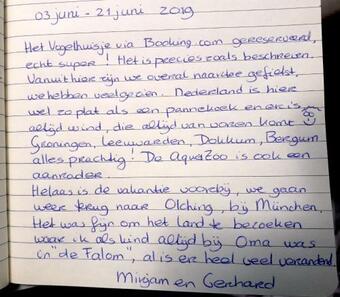 03 juni - 21 juni 2019
Het Vogelhuisje via Booking.com gereserveerd,
echt super! Het is precies zoals beschreven.
Vanuit hier zijn we overal naartoe gefietst,
we hebben veel gezien. Nederland is hier
wel zo plat als een pannekoek en er is
altijd wind, die altijd van voren komt
Groningen, Leeuwarden, Dokkum, Bergum
alles prachtig! De AquaZoo is ook een
aanrader.
Helaas is de vakantie voorbij, we gaan
weer terug naar Olching, bij München.
Het was fijn om het land te bezoeken
waar ik als kind altijd bij Oma was
in "de Falom", al is er heel veel veranderd.
Mirjam en Gerhard